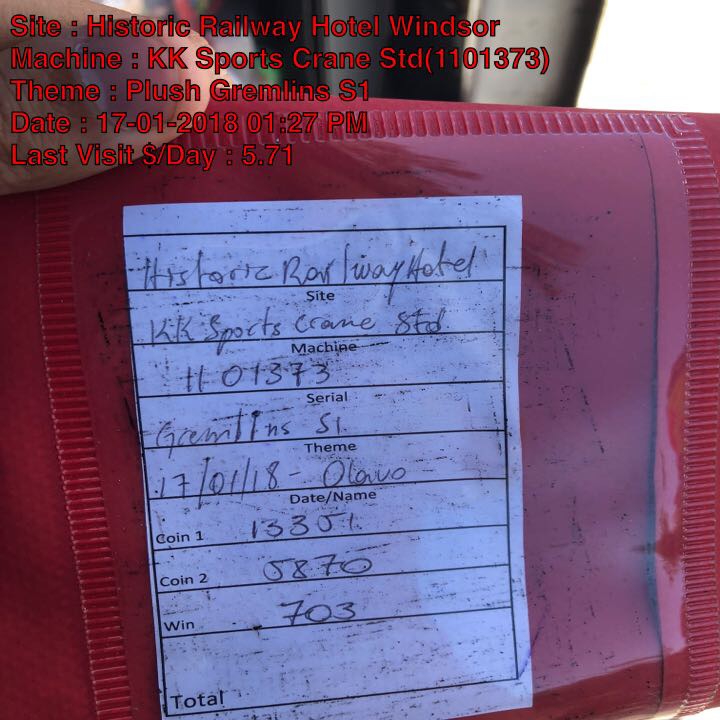 Site : Historic Railway Hotel Windsor
Machine : KK Sports Crane Std(1101373)
Theme : Plush Gremlins S1
Date : 17-01-2018 01:27 PM
Last Visit $/Day : 5.71
Historic Railway Hotel
Site
KK Sports Crane Std
Machine
1101373
Serial
Gremlins S1
Theme
17/01/18 - Olavo
Date/Name
Coin 1 13301
Coin 2 5870
Win 703
Total